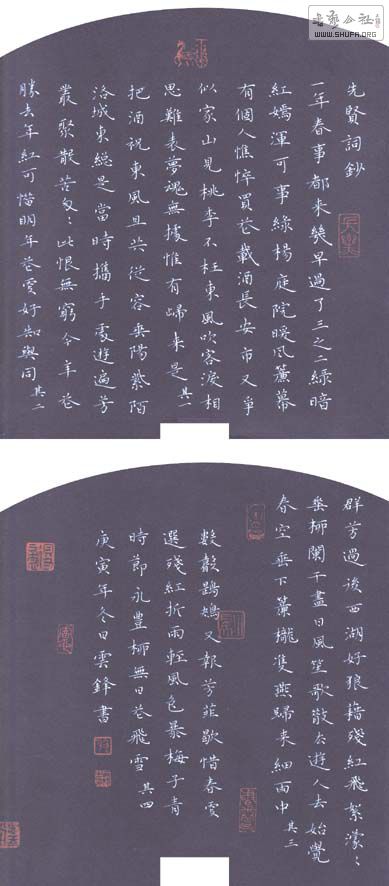 书艺公社
WWW.SHUFA.ORG
先賢詞鈔
一年春事都來幾早過了三之二綠暗
紅嫣渾可事綠楊庭院暖風簾幕
有個人憔悴買花載酒長安市又爭
似家山見桃李不枉東風吹客淚相
思難表夢魂無據惟有歸來是 其一
把酒祝東風且共從容垂陽紫陌
洛城東總是當時攜手處遊遍芳
叢聚散苦匆：此恨無窮今年花
勝去年紅可惜明年花更好知與同 其二
群芳過後西湖好狼藉殘紅飛絮濛：
垂柳闌干盡日風笙歌散去遊人去始覺
春空垂下簾櫳雙燕歸來細雨中 其三
數聲鶗鴂又報芳菲歇惜春更
選殘紅折雨輕風色暴梅子青
時節永豐柳無日花飛雪 其四
庚寅年冬日雲鋒書